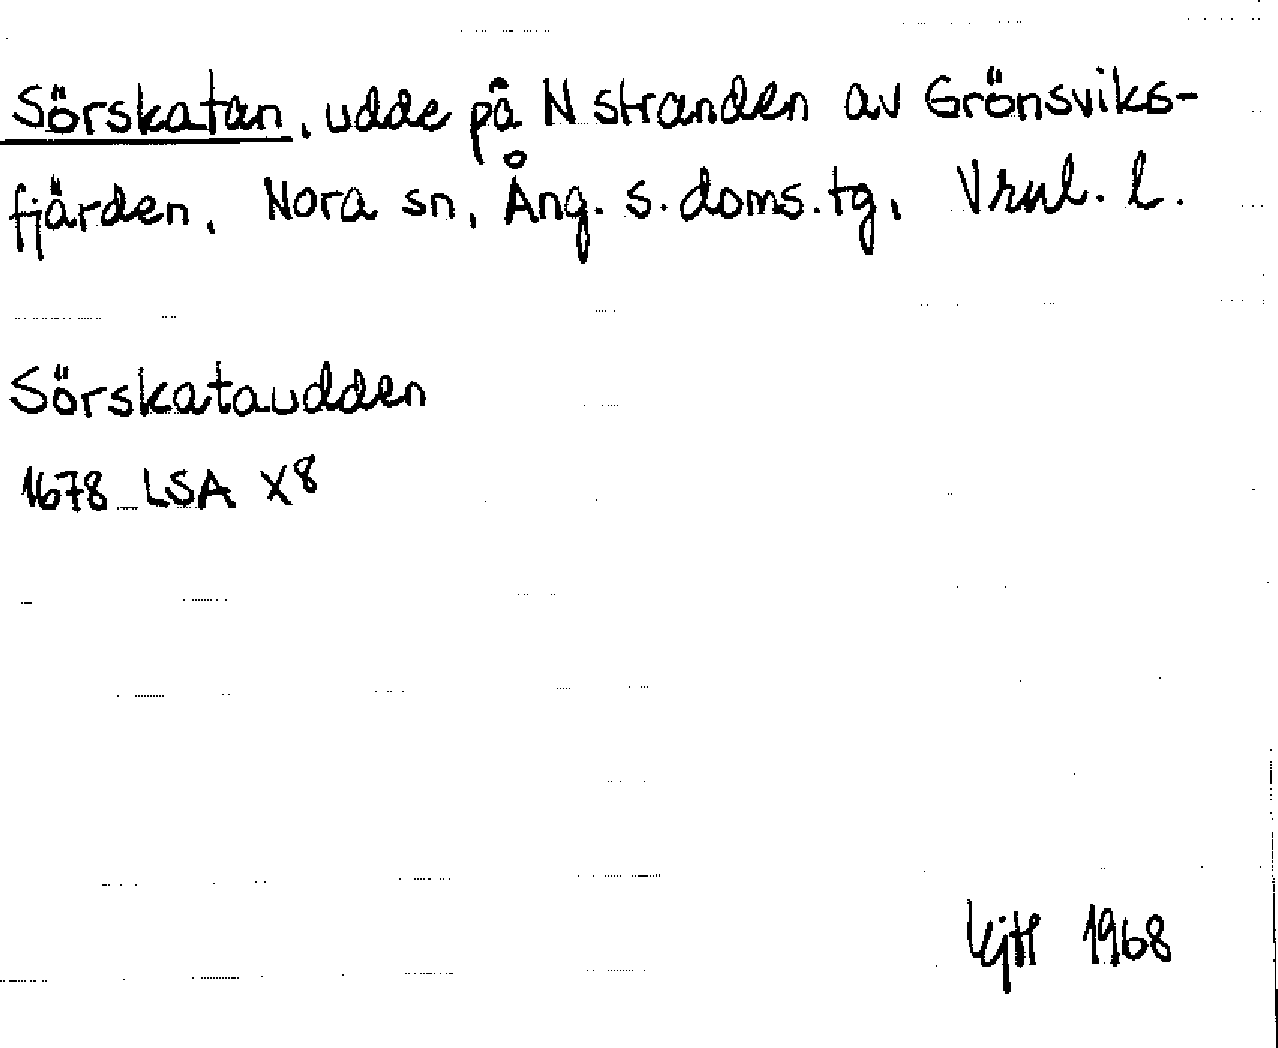 Sörskatan, udde på N stranden av Grönsviks-
fjärden, Nora sn, Ång. s. doms. tg, Vrnl. l.
Sörskataudden
1678 LSA X8
1968